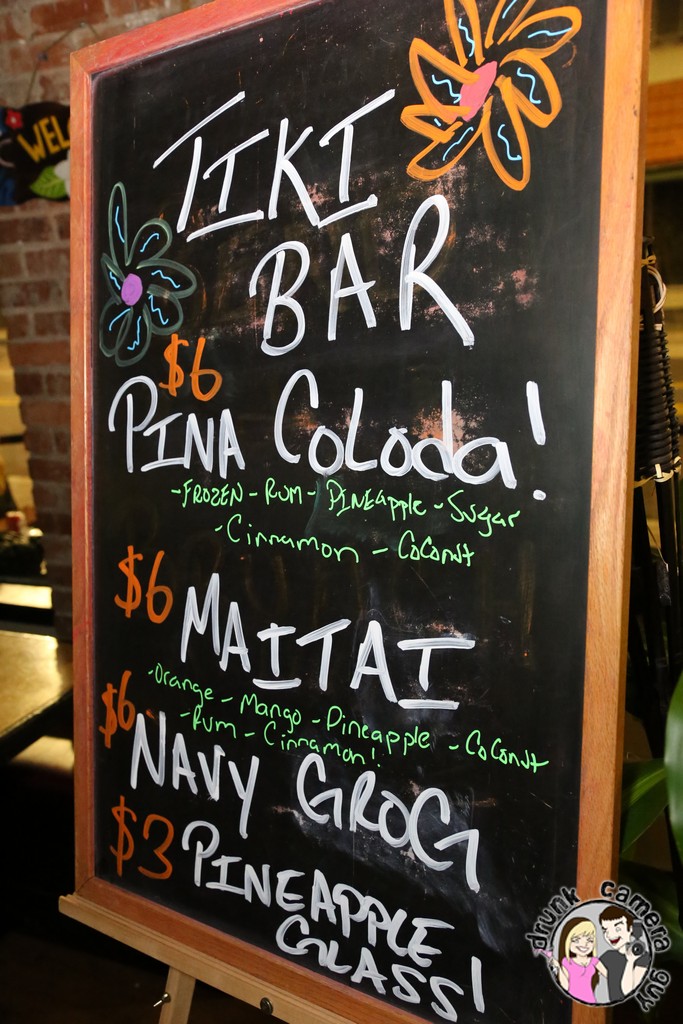 WEL
TIKI
BAR
$6
PINA CoLoda!
-FROZEN - Rum - PINEapple - Sugar
- Cinnamon - CoConut
$6 MAITAI
- Orange - Mango - Pineapple - CoConut
- Rum - Cinnamon!
$6 NAVY GROG
$3 PINEAPPLE
GLASS!
drunk camera guy